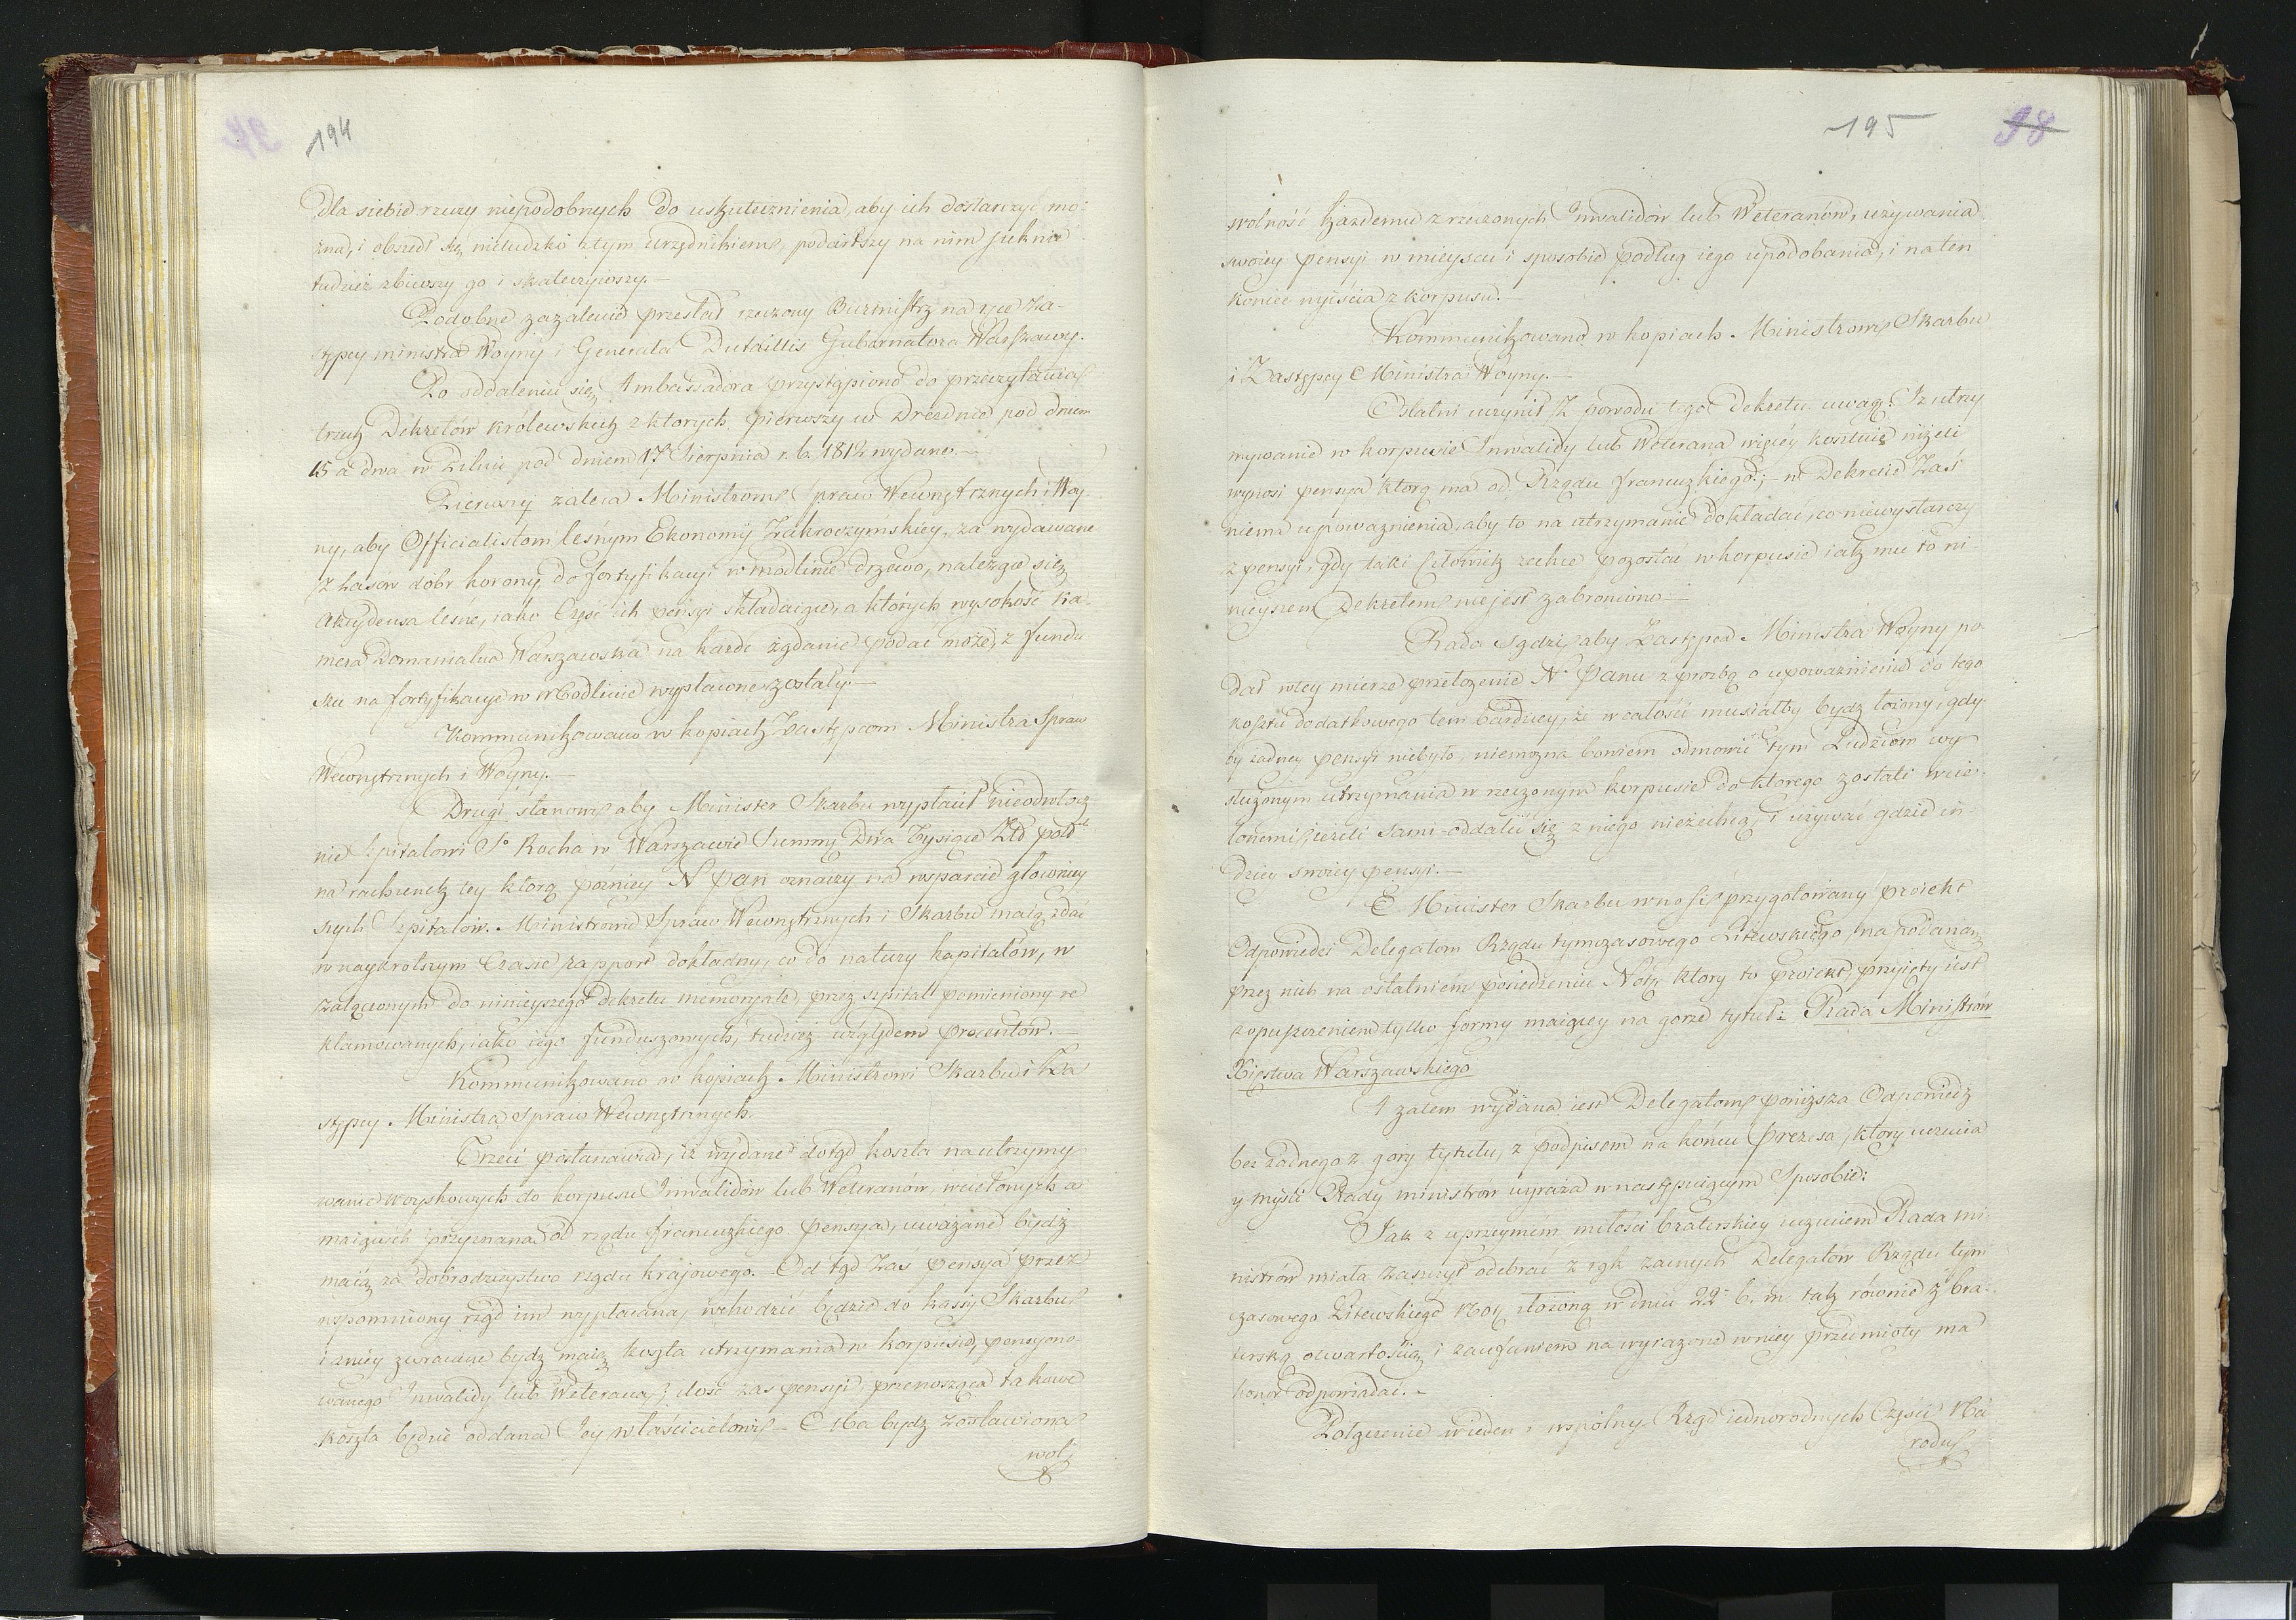 194
dla siebie rzeczy niepodobnych do uskutecznienia, aby ich dostarczyć mo-
żna, i obszedł się nieludzko z tym urzędnikiem, podartszy na nim suknie
tudzież zbiwszy go i skaleczywszy.—
Podobne zażalenie przesłał rzeczony Burmistrz na ręce Za-
stępcy ministra Woyny i Generała Dutaillis Gubernatora Warszawy.
Po oddaleniu się Ambassadora przystąpiono do przeczytania
trzech Dekretów królewskich z ktorych pierwszy w Dreźnie pod dniem
15 a dwa w Pilnic pod dniem 17 Sierpnia r. b. 1812 wydane.—
Pierwszy zaleca Ministrom Spraw Wewnętrznych i Woy-
ny, aby Officialistom leśnym Ekonomij Zakroczymskiey, za wydawane
z Lasów dóbr korony do fortyfikacyi w Modlinie drzewo, należące się
akcydensa leśne, iako Część ich pensyi składaiące, a których wysokość Ka-
mera Domanialna Warszawska na każde żądanie podać może, z fundu
szu na fortyfikacye w Modlinie wypłacone zostały.—
Kommunikowano w kopiach Zastępcom Ministra Spraw
Wewnętrznych i Woyny.—
Drugi stanowi aby Minister Skarbu wypłacił nieodwłocz
nie Szpitalowi So Rocha w Warszawie Summę Dwa Tysiące Złd pold
na rachunek tey ktorą pozniey N Pan oznaczy na wsparcie głowniey
szych Szpitalów. Ministrowie Spraw Wewnętrznych i Skarbu maią zdać
w naykrotszym Czasie rapport dokładny, co do natury kapitałów, w
załączonym do ninieyszego Dekretu memoryale, przez szpital pomieniony re
klamowanych, iako iego funduszowych, tudzież względem procentów.—
Kommunikowano w kopiach Ministrowi Skarbu i Za
stępcy Ministra Spraw Wewnętrznych.
Trzeci postanawia, iż wydane dotąd koszta na utrzymy
wanie woyskowych do korpusu Inwalidów lub Weteranów, wcielonych a
maiących przyznaną od rządu francuzkiego pensyą, uważane bydź
maią za dobrodzieystwo rządu krajowego. Od tąd zaś pensya przez
wspomniony rząd im wypłacana, wchodzić będzie do kassy Skarbu
i z niey zwracane bydź maią koszta utrzymania w korpusie, pensyono-
wanego Inwalidy lub Weterana; ilość zaś pensyi, przenosząca takowe
koszta będzie oddana Jey właścicielowi — Ma bydź zostawiona
wol
195
98
wolność każdemu z rzeczonych Inwalidów lub Weteranów, używania
swoiey pensyi w mieyscu i sposobie podług iego upodobania, i na ten
koniec wyiścia z korpusu.—
Kommunikowano w kopiach Ministrom Skarbu
i Zastępcy Ministra Woyny.—
Ostatni uczynił z powodu tego Dekretu uwagę: Iż utrzy
mywanie w korpusie Inwalidy lub Weterana więcéy kosztuie niżeli
wynosi pensya ktorą ma od Rządu francuzkiego; — w Dekrecie Zaś
niema upoważnienia, aby to na utrzymanie dokładać, co niewystarczy
z pensyi, gdy taki Człowiek zechce pozostać w korpusie iak mu to ni-
nieyszem Dekretem nie jest zabroniono—
Rada sądzi, aby Zastępca Ministra Woyny po-
dał w tey mierze przełożenie N. Panu z proźbą o upoważnienie do tego
kosztu dodatkowego tem bardziey, że w całości musiałby bydź łożony, gdy-
by żadney pensyi niebyło, niemożna bowiem odmowić tym Ludziom wy
służonym utrzymania w rzeczonym korpusie do ktorego zostali wcie-
lonemi, ieżeli sami oddalić się z niego niezechcą, i używać gdzie in-
dziey swoiey pensyi.—
Minister Skarbu wnosi przygotowany proiekt
Odpowiedzi Delegatom Rządu tymczasowego Litewskiego, na podaną
przez nich na ostatniém posiedzeniu Notę, ktory to proiekt, przyięty iest
z opuszczeniem tylko formy maiącey na gorze tytuł: Rada Ministrów
Xięstwa Warszawskiego
A zatem wydana iest Delegatom poniższa Odpowiedź
bez żadnego z gory tytułu, z podpisem na końcu Prezesa, ktory uczucia
y myśli Rady ministrów wyraża w następuiącym Sposobie:
Jak z uprzeymém miłości braterskiey uczuciem Rada mi-
nistrów miała zaszczyt odebrać z rąk zacnych Delegatów Rządu tym
czasowego Litewskiego Notę złożoną w dniu 22 b. m. tak równie z bra-
terską otwartością i zaufaniem na wyrażone w niey przedmioty ma
honor odpowiadać.—
Połączenie w ieden i wspólny Rząd iednorodnych Części Na
rodu